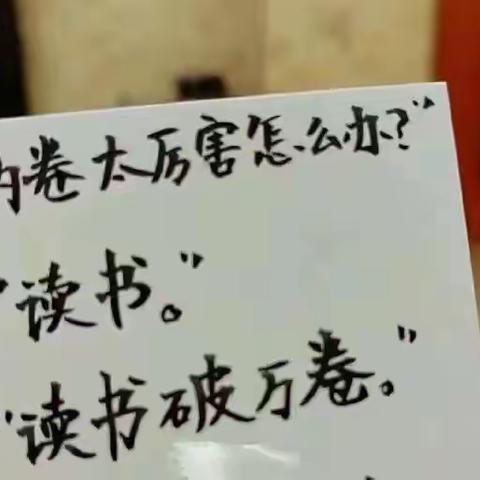 内卷太厉害怎么办?"
"读书。"
"读书破万卷。"